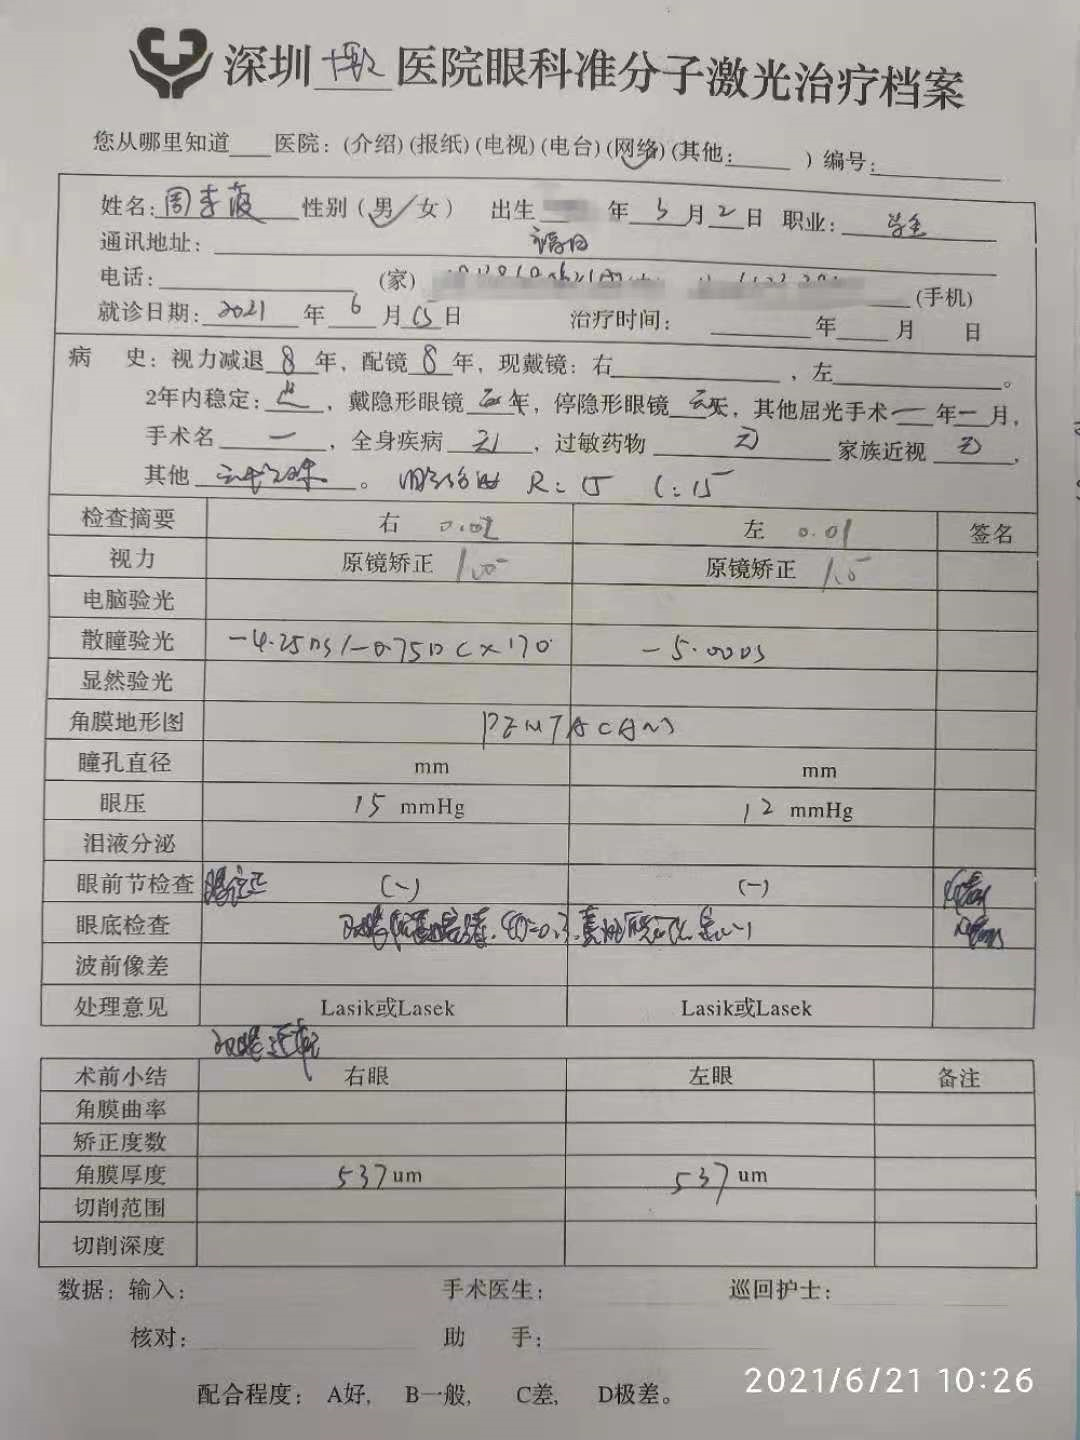 深圳 医院眼科准分子激光治疗档案
您从哪里知道____医院：(介绍)(报纸)(电视)(电台)(网络)(其他：____)编号：____
姓名：周 性别（男/女） 出生 年 3 月 2 日 职业：学生
通讯地址：
电话：____(家) (手机)
就诊日期：2021 年 6 月 15 日 治疗时间：____年____月 日
病 史：视力减退 8 年，配镜 8 年，现戴镜：右____，左____。
2年内稳定：是，戴隐形眼镜 年，停隐形眼镜 天，其他屈光手术 一 年 一 月，
手术名 一，全身疾病 无，过敏药物 无 家族近视 无，
其他 。 R：15 L：15
检查摘要 右 0.02 左 0.01 签名
视力 原镜矫正 1.0 原镜矫正 1.0
电脑验光
散瞳验光 -4.25DS/-0.75DC×170 -5.00DS
显然验光
角膜地形图 PENTACAM
瞳孔直径 mm mm
眼压 15 mmHg 12 mmHg
泪液分泌
眼前节检查 (-) (-)
眼底检查
波前像差
处理意见 Lasik或Lasek Lasik或Lasek
双眼近视
术前小结 右眼 左眼 备注
角膜曲率
矫正度数
角膜厚度 537um 537um
切削范围
切削深度
数据：输入： 手术医生： 巡回护士：
核对： 助 手：
配合程度： A好， B一般， C差， D极差。
2021/6/21 10:26